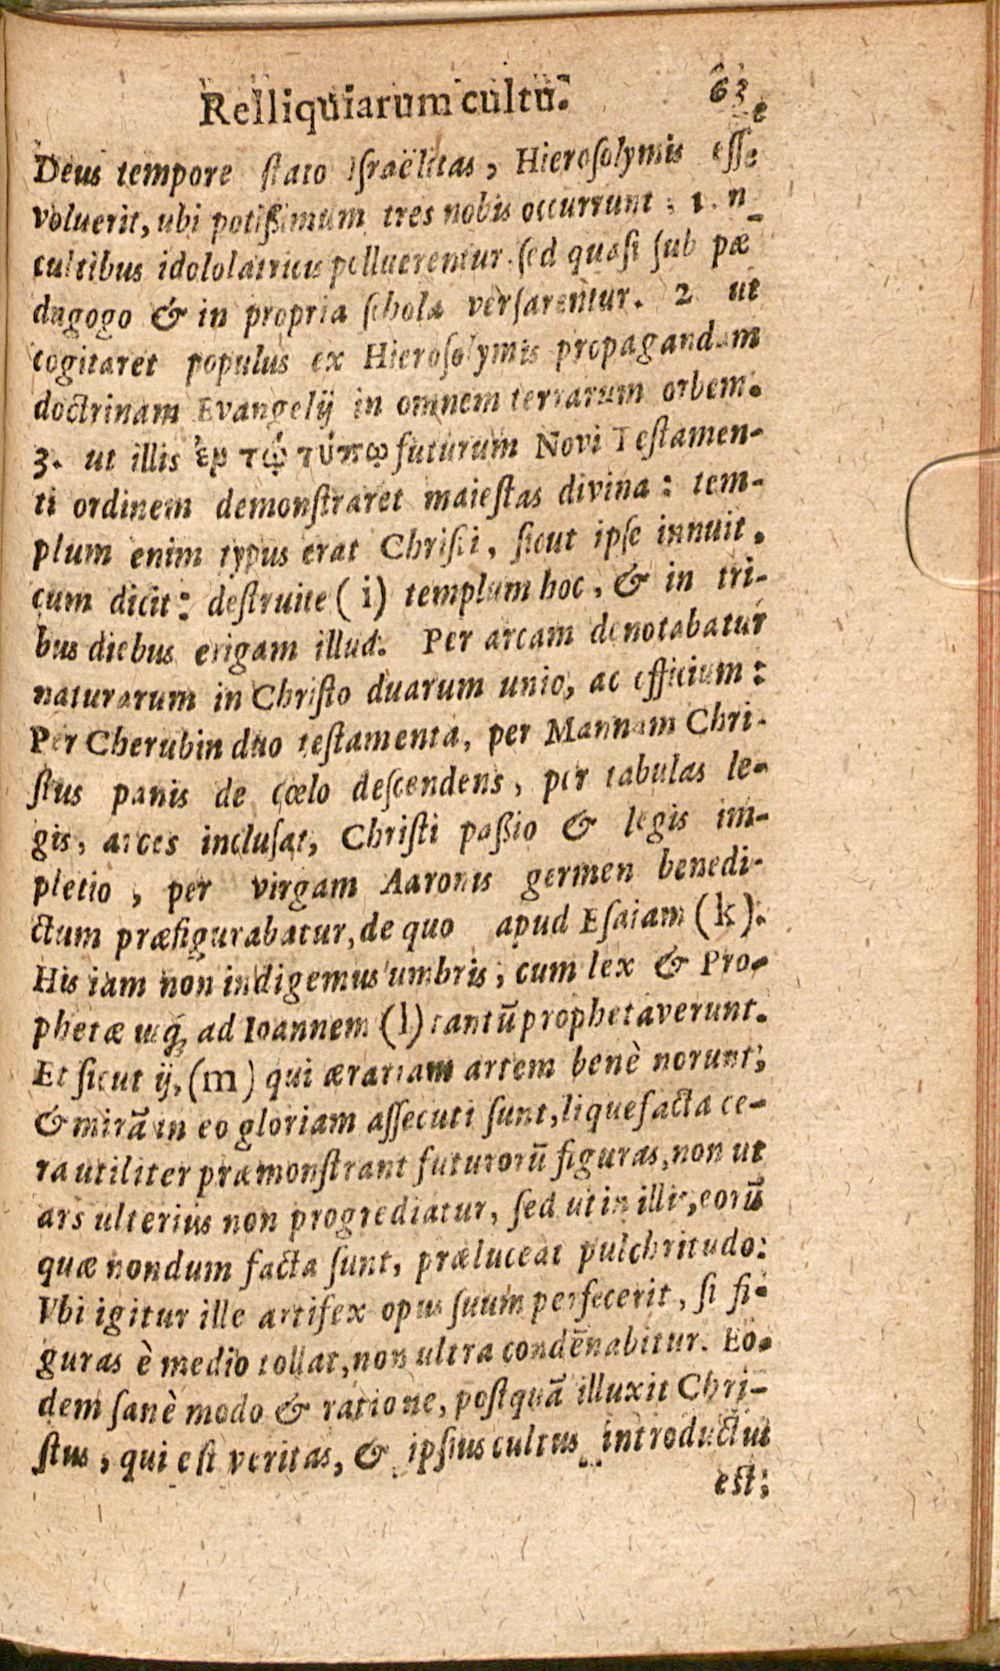 Relliquiarum cultu. 63
Deus tempore stato Israëlitas, Hierosolymis esse
voluerit, ubi potißimum tres nobis occurrunt: 1. n
cultibus idololatricis polluerentur. sed quasi sub pæ
dagogo & in propria schola versarentur. 2 ut
cogitaret populus ex Hierosolymis propagandam
doctrinam Evangelij in omnem terrarum orbem.
3. ut illis ἐν τῷ τύπῳ futurum Novi Testamen-
ti ordinem demonstraret maiestas divina: tem-
plum enim typus erat Christi, sicut ipse innuit,
cum dicit: destruite (i) templum hoc, & in tri-
bus diebus erigam illud. Per arcam denotabatur
naturarum in Christo duarum unio, ac officium:
Per Cherubin duo testamenta, per Mannam Chri-
stus panis de cœlo descendens, per tabulas le-
gis, arces inclusat, Christi paßio & legis im-
pletio, per virgam Aaronis germen benedi-
ctum præfigurabatur, de quo apud Esaiam (k).
His iam non indigemus umbris, cum lex & Pro-
phetæ usq́; ad Ioannem (l) tantũ prophetaverunt.
Et sicut ij, (m) qui ærariam artem benè norunt,
& mirã in eo gloriam assecuti sunt, liquefacta ce-
ra utiliter præmonstrant futurorũ figuras, non ut
ars ulterius non progrediatur, sed ut in illis, eorũ
quæ nondum facta sunt, præluceat pulchritudo:
Vbi igitur ille artifex opus suum perfecerit, si fi-
guras è medio tollat, non ultra condẽnabitur. Eo-
dem sanè modo & ratione, postquã illuxit Chri-
stus, qui est veritas, & ipsius cultus introductus
est;